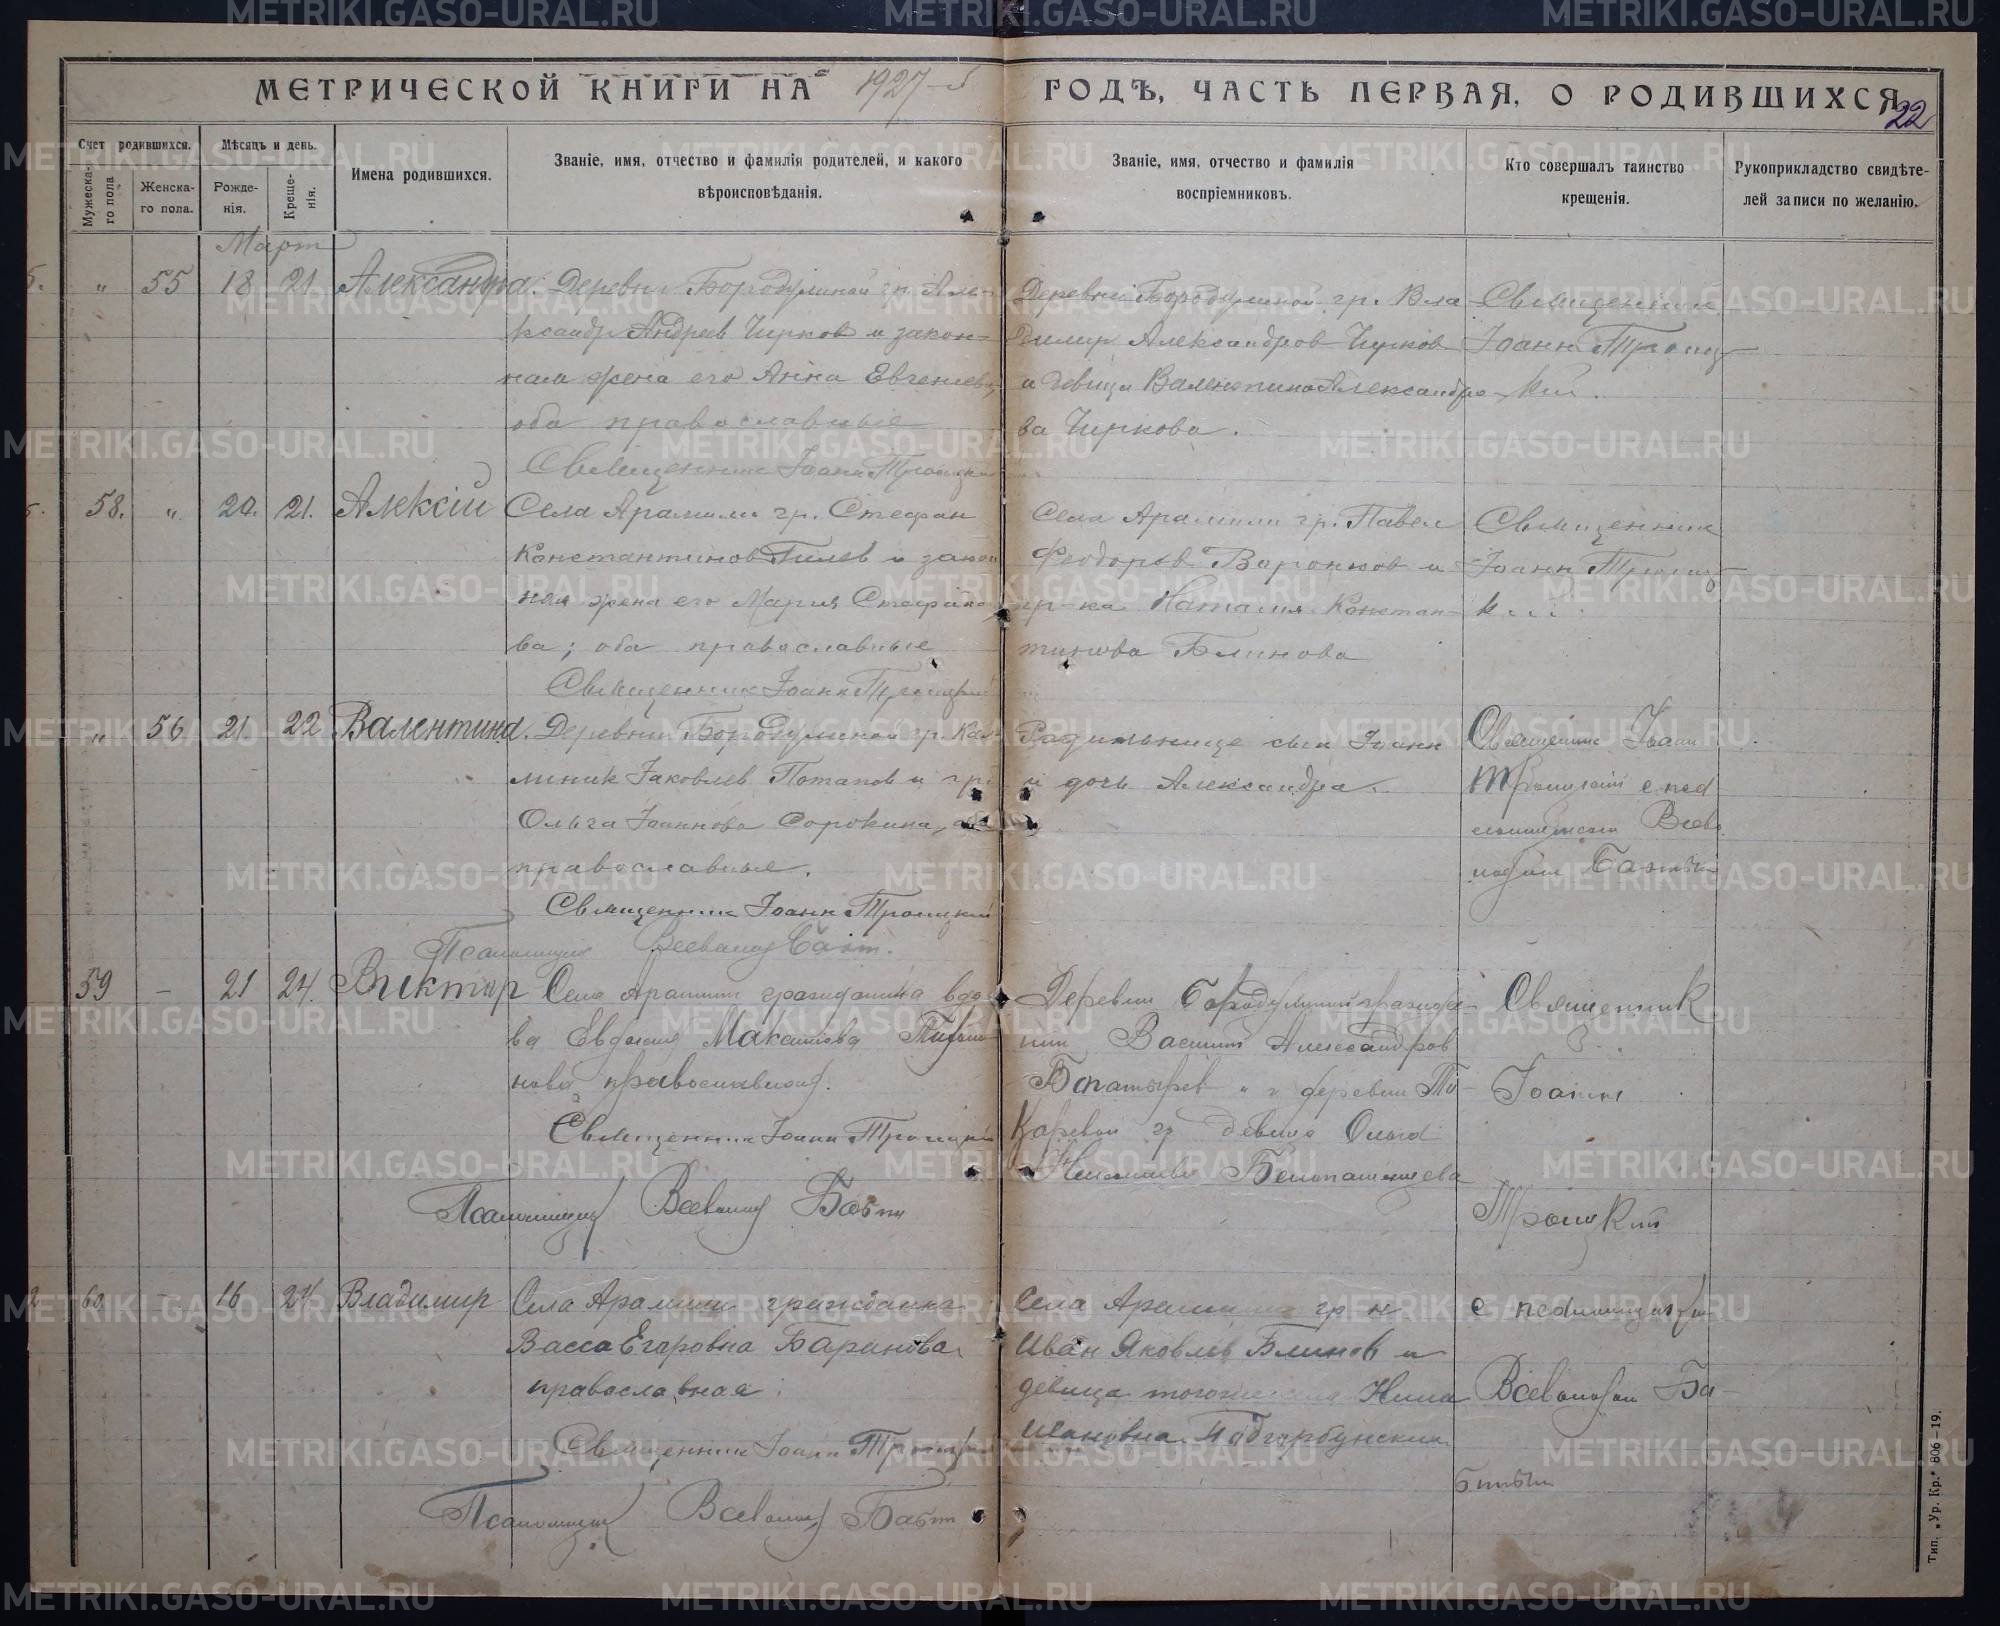 МЕТРИЧЕСКОЙ КНИГИ НА 1927-й ГОДЪ, ЧАСТЬ ПЕРВАЯ, О РОДИВШИХСЯ
22
Счет родившихся.
Мужеска-го пола
Женска-го пола.
Мѣсяцъ и день.
Рожде-нія.
Креще-нія.
Имена родившихся.
Званіе, имя, отчество и фамилія родителей, и какого
вѣроисповѣданія.
Званіе, имя, отчество и фамилія
воспріемниковъ.
Кто совершалъ таинство
крещенія.
Рукоприкладство свидѣте-
лей записи по желанію.
Март
" 55 18 21 Александра. Деревни Бородулиной гр. Але-
ксандр Андреев Чирков и закон-
ная жена его Анна Евгениева,
оба православные
Священник Іоанн Троицкий
Деревни Бородулиной гр. Вла-
димир Александров Чирков
и девица Валентина Александро-
ва Чиркова.
Священник
Іоанн Троиц-
кий.
58. " 20. 21. Алексій Села Арамили гр. Стефан
Константинов Гилев и закон
ная жена его Мария Стефано-
ва; оба православные
Священник Іоанн Троицкий
Села Арамили гр. Павел
Феодоров Воронков и
гр-ка Наталия Констан-
тинова Блинова
Священник
Іоанн Троиц-
кий
" 56 21 22 Валентина. Деревни Бородулиной гр. Кал-
линик Іаковлев Потапов и гр.
Ольга Іоаннова Сорокина, оба
православные.
Священник Іоанн Троицкий
Псаломщик Всеволод
Родильнице сын Іоанн
и дочь Александра.
Священник Іоанн
Троицкий с псал
ломщиком Всево
лодом
59 - 21 24. Виктор Села Арамили гражданка вдо
ва Евдокия Максимова
нова православная.
Священник Іоанн Троицкий
Псаломщик Всеволод
Деревни Бородулиной гражда-
нин Василий Александров
Богатырев и деревни То-
каревой гр девица Ольга
Белопашенцева
Священник
Іоанн
Троицкий
60 - 16 24 Владимир Села Арамили гражданка
Васса Егоровна Баранова
православная.
Священник Іоанн Троицкий
Псаломщик Всеволод
Села Арамили гр-н
Иван Яковлев Блинов и
девица того же села Нина
Ивановна Подгорбунских
с псаломщиком
Всеволодом Ба-
Тип. „Ур. Кр.“ 806—19.
METRIKI.GASO-URAL.RU